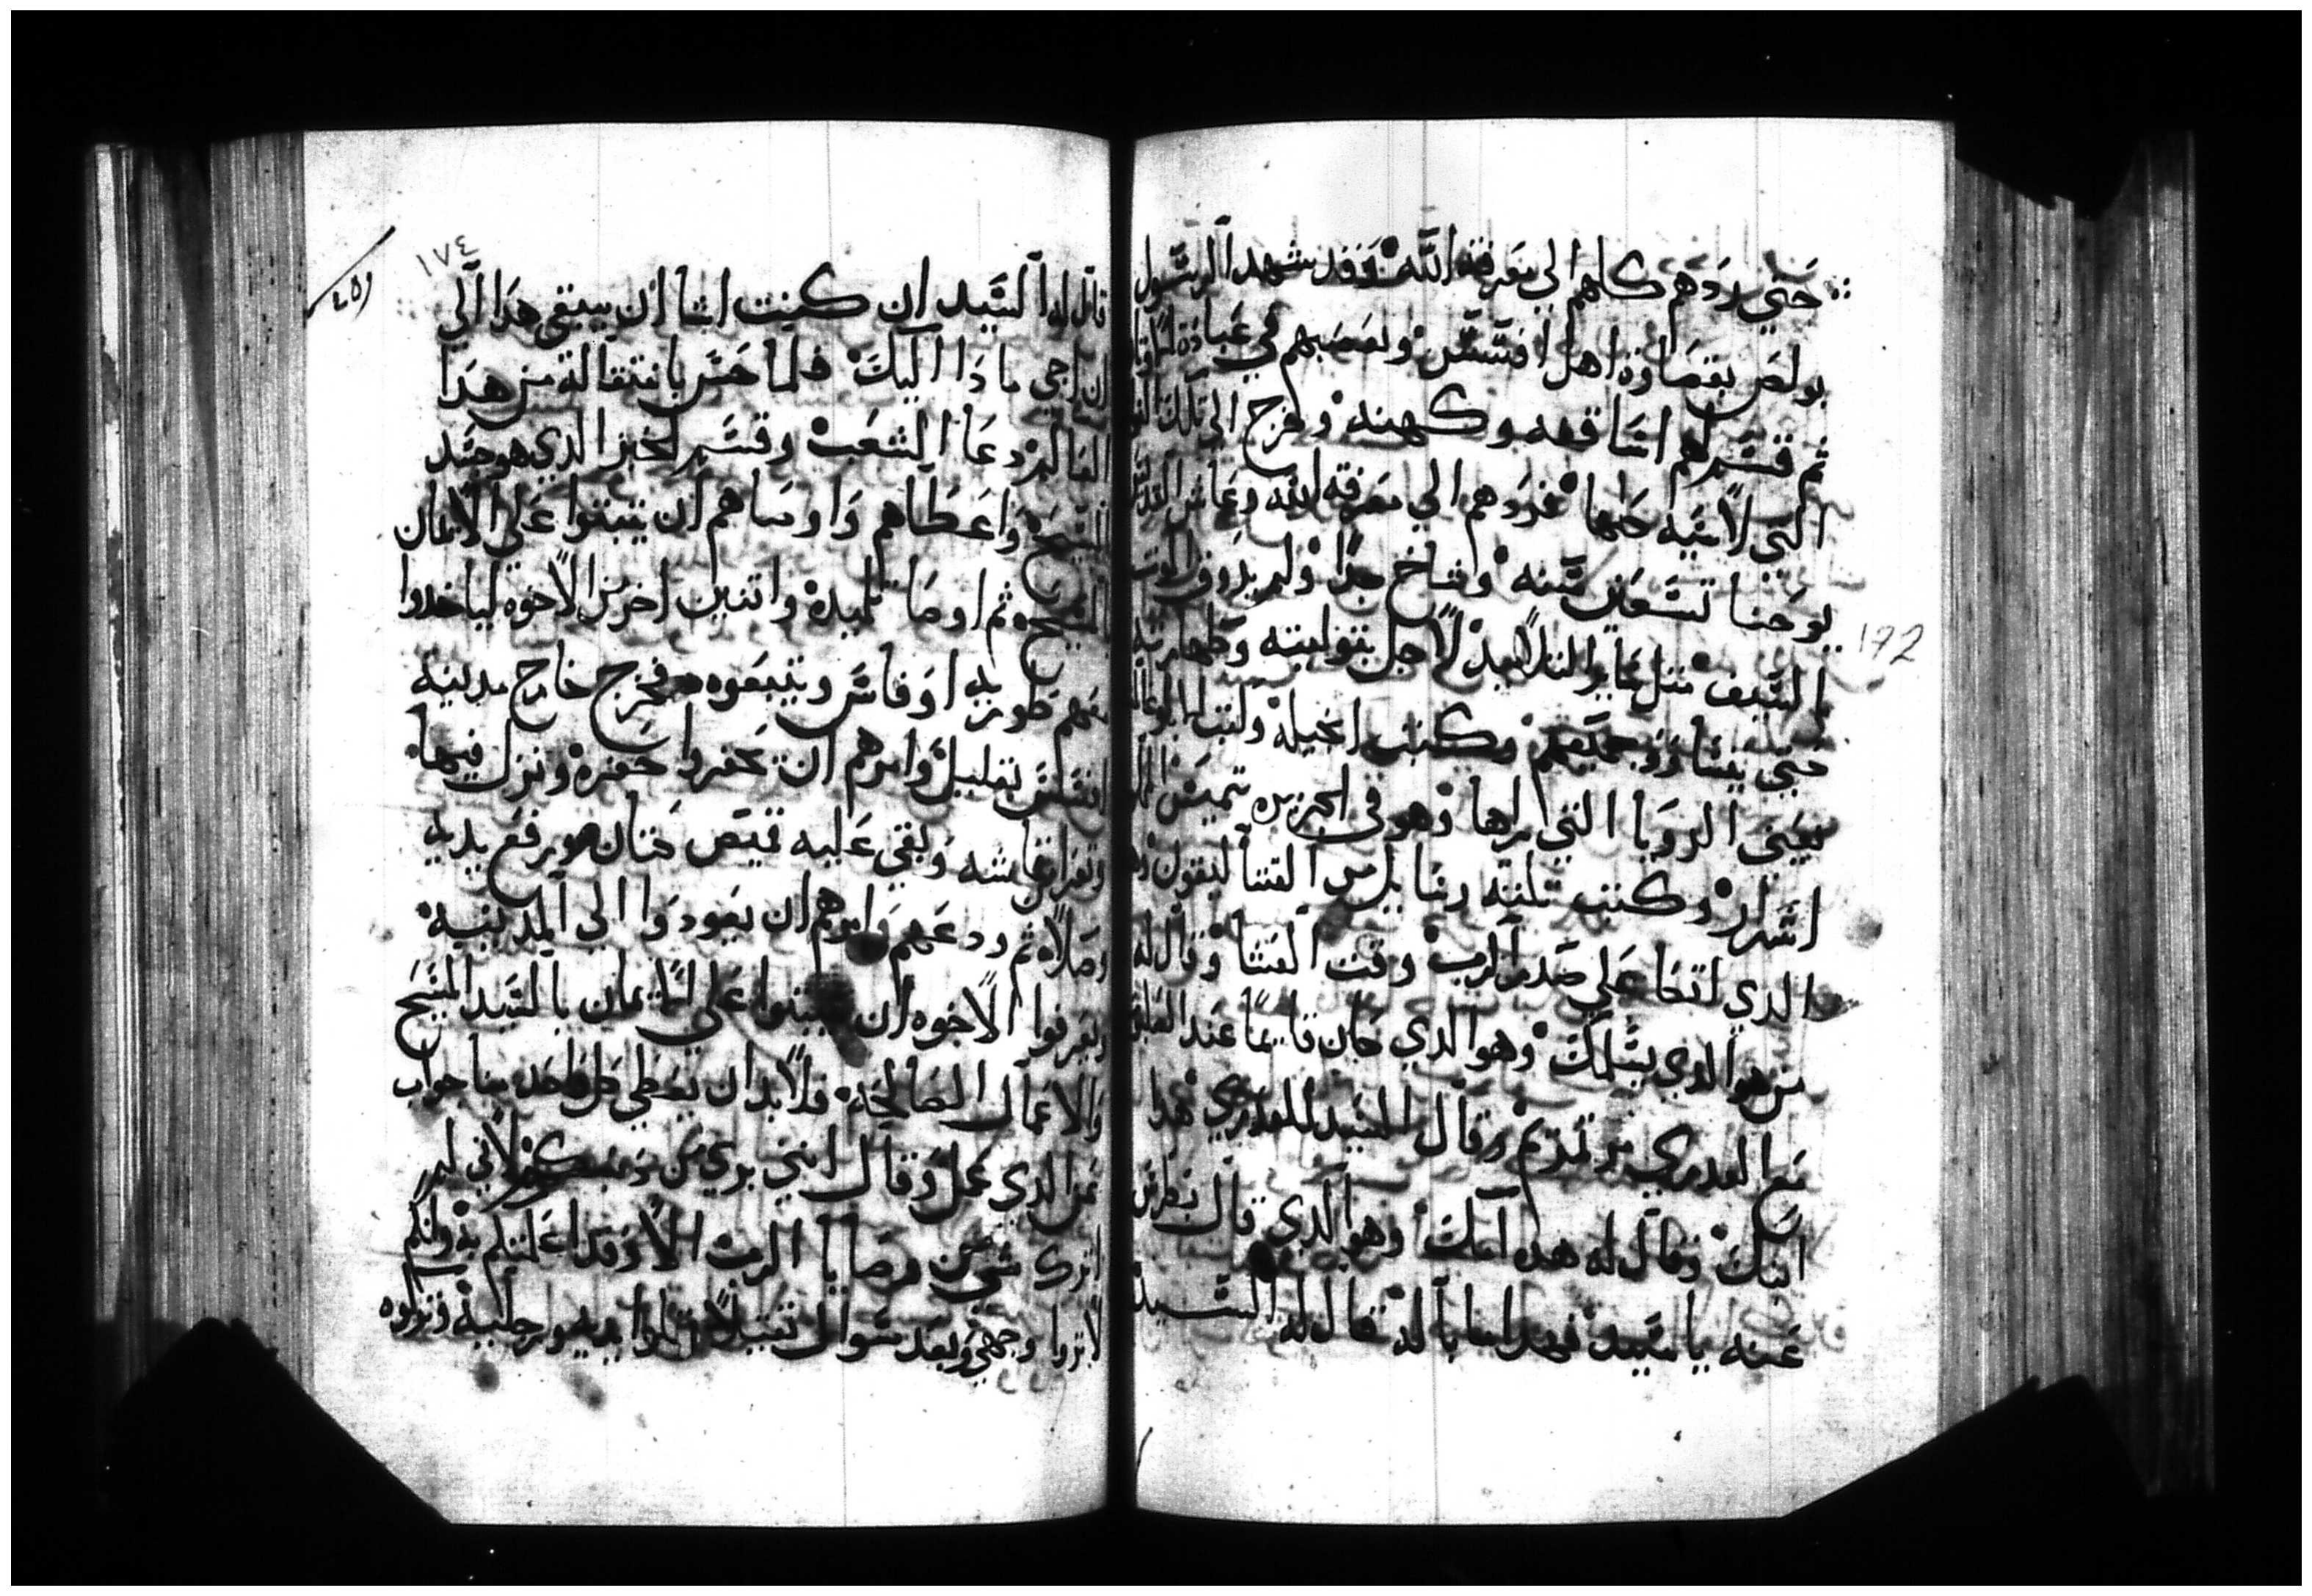 حتي ردهم كلهم الي معرفة الله وقد شهد الرسول
بولص بقصاوة اهل افسس وتعصبهم في عبادة
ثم قسم لهم اساقفه وكهنه وخرج الي تلك
التي لاسيه حتها فردهم الي معرفة الله وعاش
يوحنا تسعين سنه وشاخ جدا ولم يدوق الموت
بالسيف مثل ساير التلاميد لاجل بتوليته وطهارته
حتي يتساوو جميعهم وكتب انجيله وكتب ابوغالمسيس
يعني الرويا التي راها وهو في الجزيره
اسرار وكتب تلته رسايل من القتاليقون
الذي اتكا علي صدر الرب وقت العشا وقال له
من هو الذي يسلمك وهو الدي كان قايما عند
مع العدري مرتمريم وقال السيد للعدري هدا
ابنك وقال له هده امك وهو الدي قال بطرس
عنه يا سيد فهدا ما باله فقال له السيد
١٧٤
172
قال له السيد ان كنت اشا ان يبقي هدا الي
ان اجي ما دا اليك فلما حس بانتقاله من هدا
العالم دعا الشعب وقسم الخبز الدي هو جسد
المسيح واعطاهم واوصاهم ان يتبتوا علي الايمان
بالمسيح ثم اوصا تلميده واتنين اخر من الاخوه لياخدوا
معهم طوريه اوفاس ويتبعوه فخرج خارج مدينة
افسس بقليل وامرهم ان يحفروا حفره ونزل فيها
وبقي عليه قميص كتان ورفع يديه
وصلا ثم ودعهم وامرهم ان يعودوا الي المدينه
ويعرفوا الاخوه ان يتبتوا علي الايمان بالسيد المسيح
والاعمال الصالحه فلابد ان يعطي كل واحد منا جواب
عن الدي عمل وقال انني بري من دمكم لاني لم
اترك شي من وصايا الرب الا وقد اعلمتكم به وانكم
لا تروا وجهي وبعد سوال يديه ورجليه وتركوه